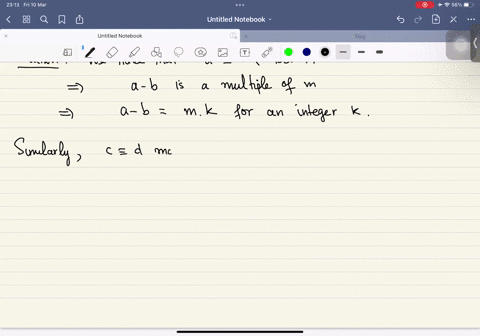 23:13 Fri 10 Mar
56%
Untitled Notebook
Untitled Notebook
⇒ a-b is a multiple of m
⇒ a-b = m.k for an integer k.
Similarly, c ≡ d mo